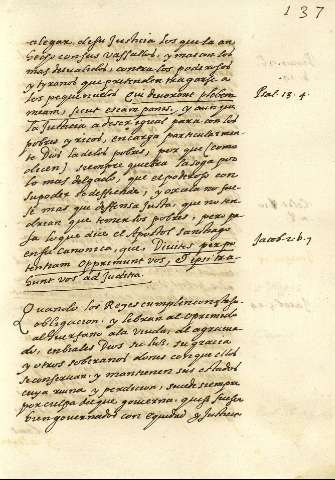 137
alegar, de su Justicia los que la an
de so con sus vassallos, y mas con los
mas desualidos, contra los poderosos
y tyranos que pretenden tragarse a
los pequeñuelos Qui deuorant plebem
meam, sicut escam panis, y aunque
la Justicia a de ser egual para con los
pobres y ricos, encarga particularmente
Dios la de los pobres, por que (como
dicen) siempre quiebra la soga por
lo mas delgado, que el poderoso con
su poder se deffiende, y oxala no fue
se mas que deffensa Justa, que no ten
drian que temer los pobres, pero pa
sa lo que dice el Apostol Santiago
en su Canonica, que, Diuites per po
tentiam opprimunt vos, & ipsi tra
hunt vos ad Judicia.
Psal. 13. 4.
Jacob. 2. 6. 7
Quando los Reyes cumplen con esta
obligacion, y libran al opremido
al huerfano a la viuda, de agrauia
do, enbiales Dios su luz, su gracia
y otros soberanos dones con que ellos
se conseruan, y mantienen sus estados
cuya ruina y perdicion, sucede siempre
por culpa de que gouierna, que si fuesen
bien gouernados con equidad y Justicia